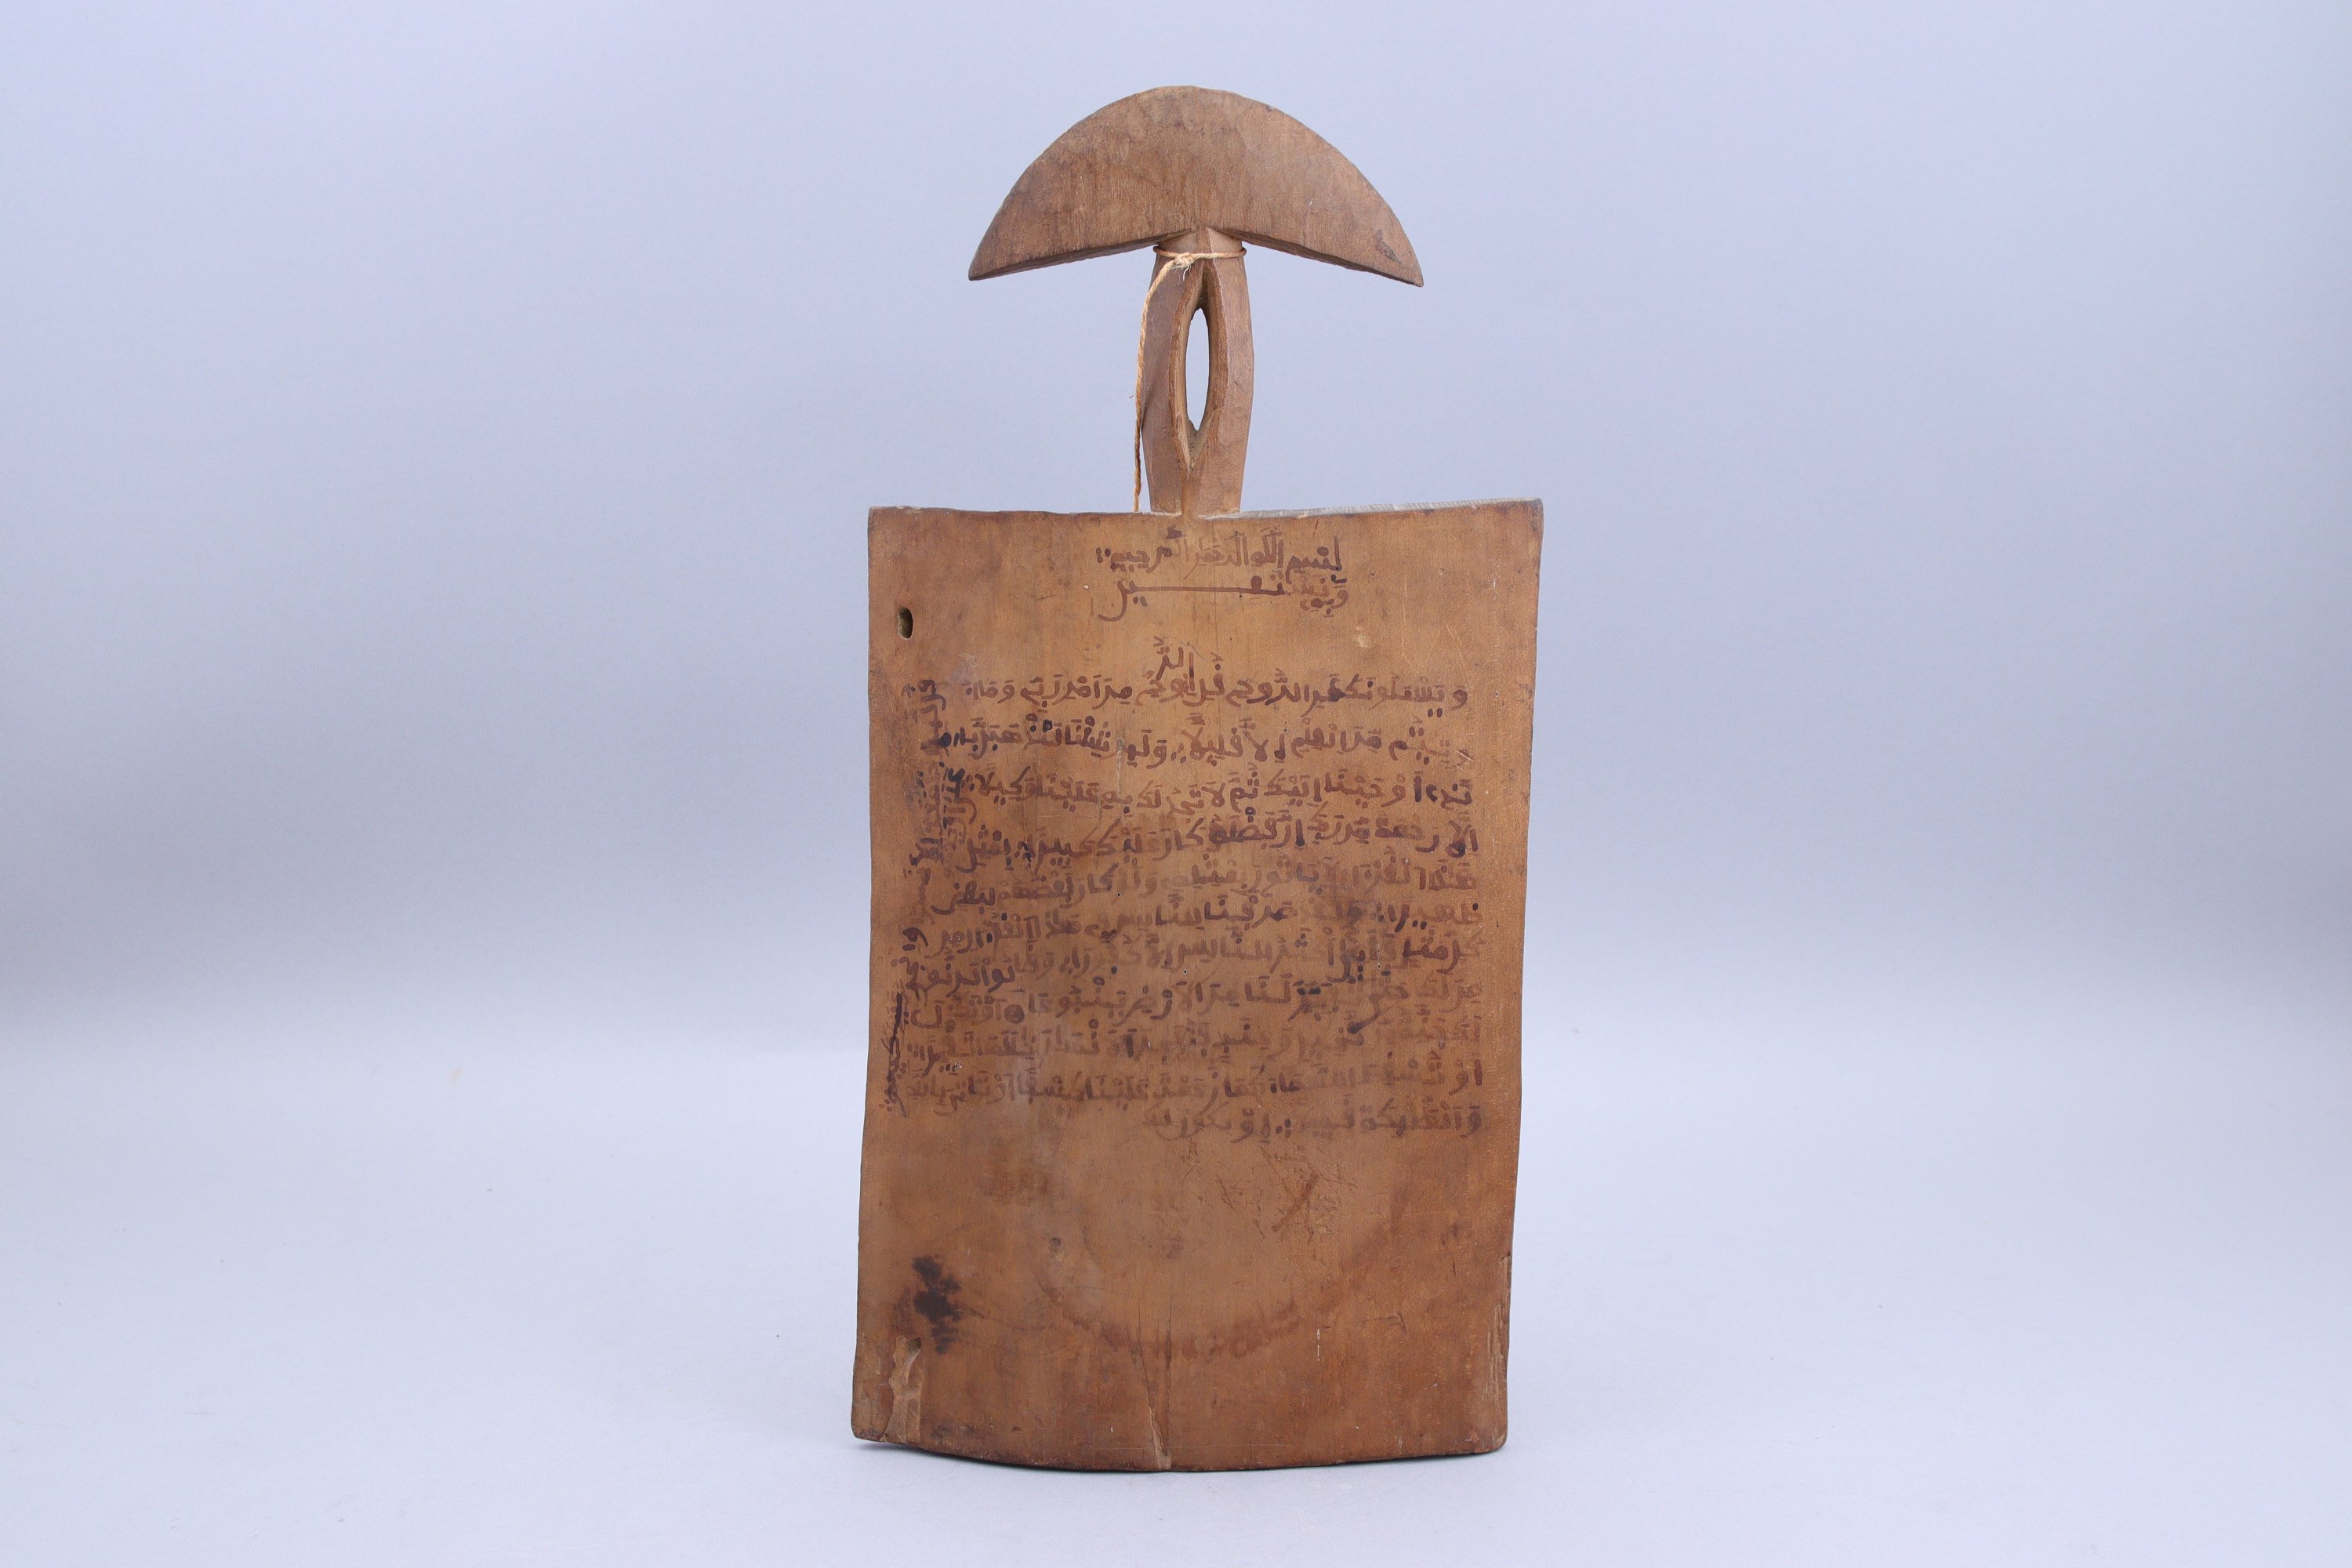 بسم الله الرحمن الرحيم
وبه نستعين
ويسئلونك عن الروح قل الروح من امر ربى وما ا
وتيتم من العلم إلا قليلا ولين شئنا لنذهبن بالذ
اوحينا إليك ثم لا تجد لك به علينا وكيلا
الا رحمة من ربك ان فضله كان عليك كبيرا بمثل
هذا القرءان لا ياتون بمثله ولو كان بعضهم لبعض
ظهيرا ولقد صرفنا للناس فى هذا القرءان من
كل مثل فابى اكثر الناس الا كفورا وقالوا لن نومن
لك حتى تفجر لنا من الارض ينبوعا او تكون
لك جنة من نخيل وعنب خللها تفجيرا
او تسقط السماء كما زعمت علينا كسفا او تاتى بالله
والمليكة قبيلا او يكون لك